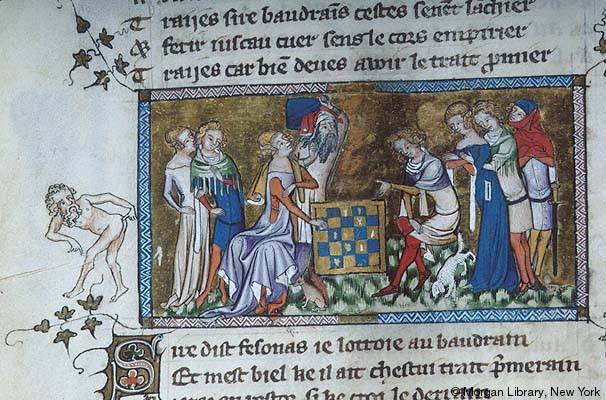 Traijes sire baudraīs cestes seuent lachier
ferir iuscau cuer sens le cors empirier
Traijes car biē deues awir le trait pmier
Sire dist fesonas ie lottroie au baudrain
Et mest biel ke il ait chestui trait pmerain
© Morgan Library, New York